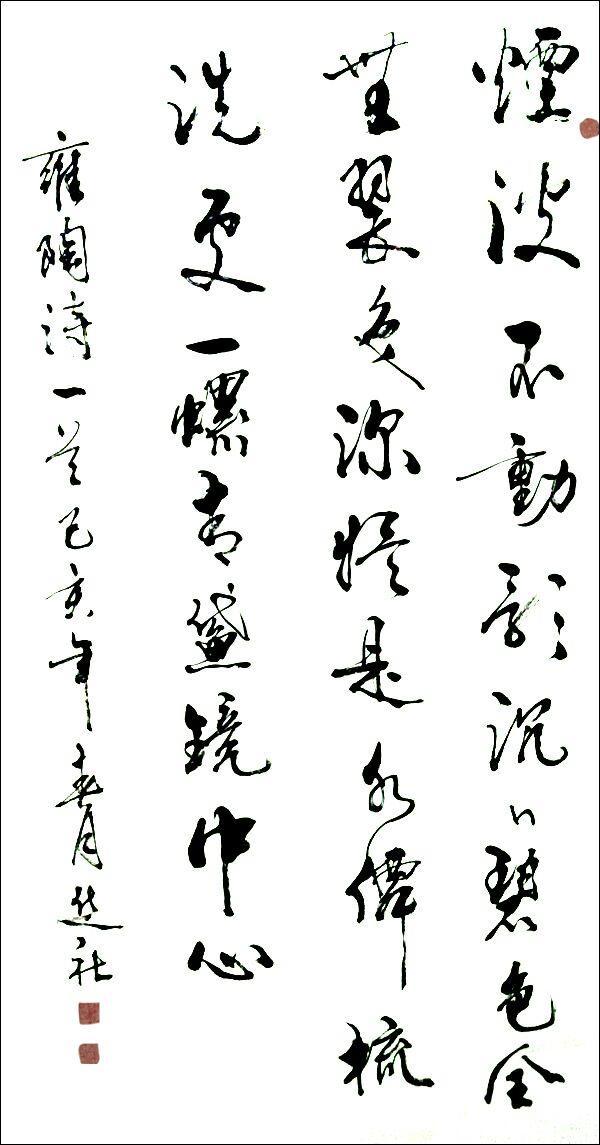 煙波不動影沉々碧色全
無翠色深疑是水僊梳
洗處一螺青黛鏡中心
雍陶詩一首己亥年春月